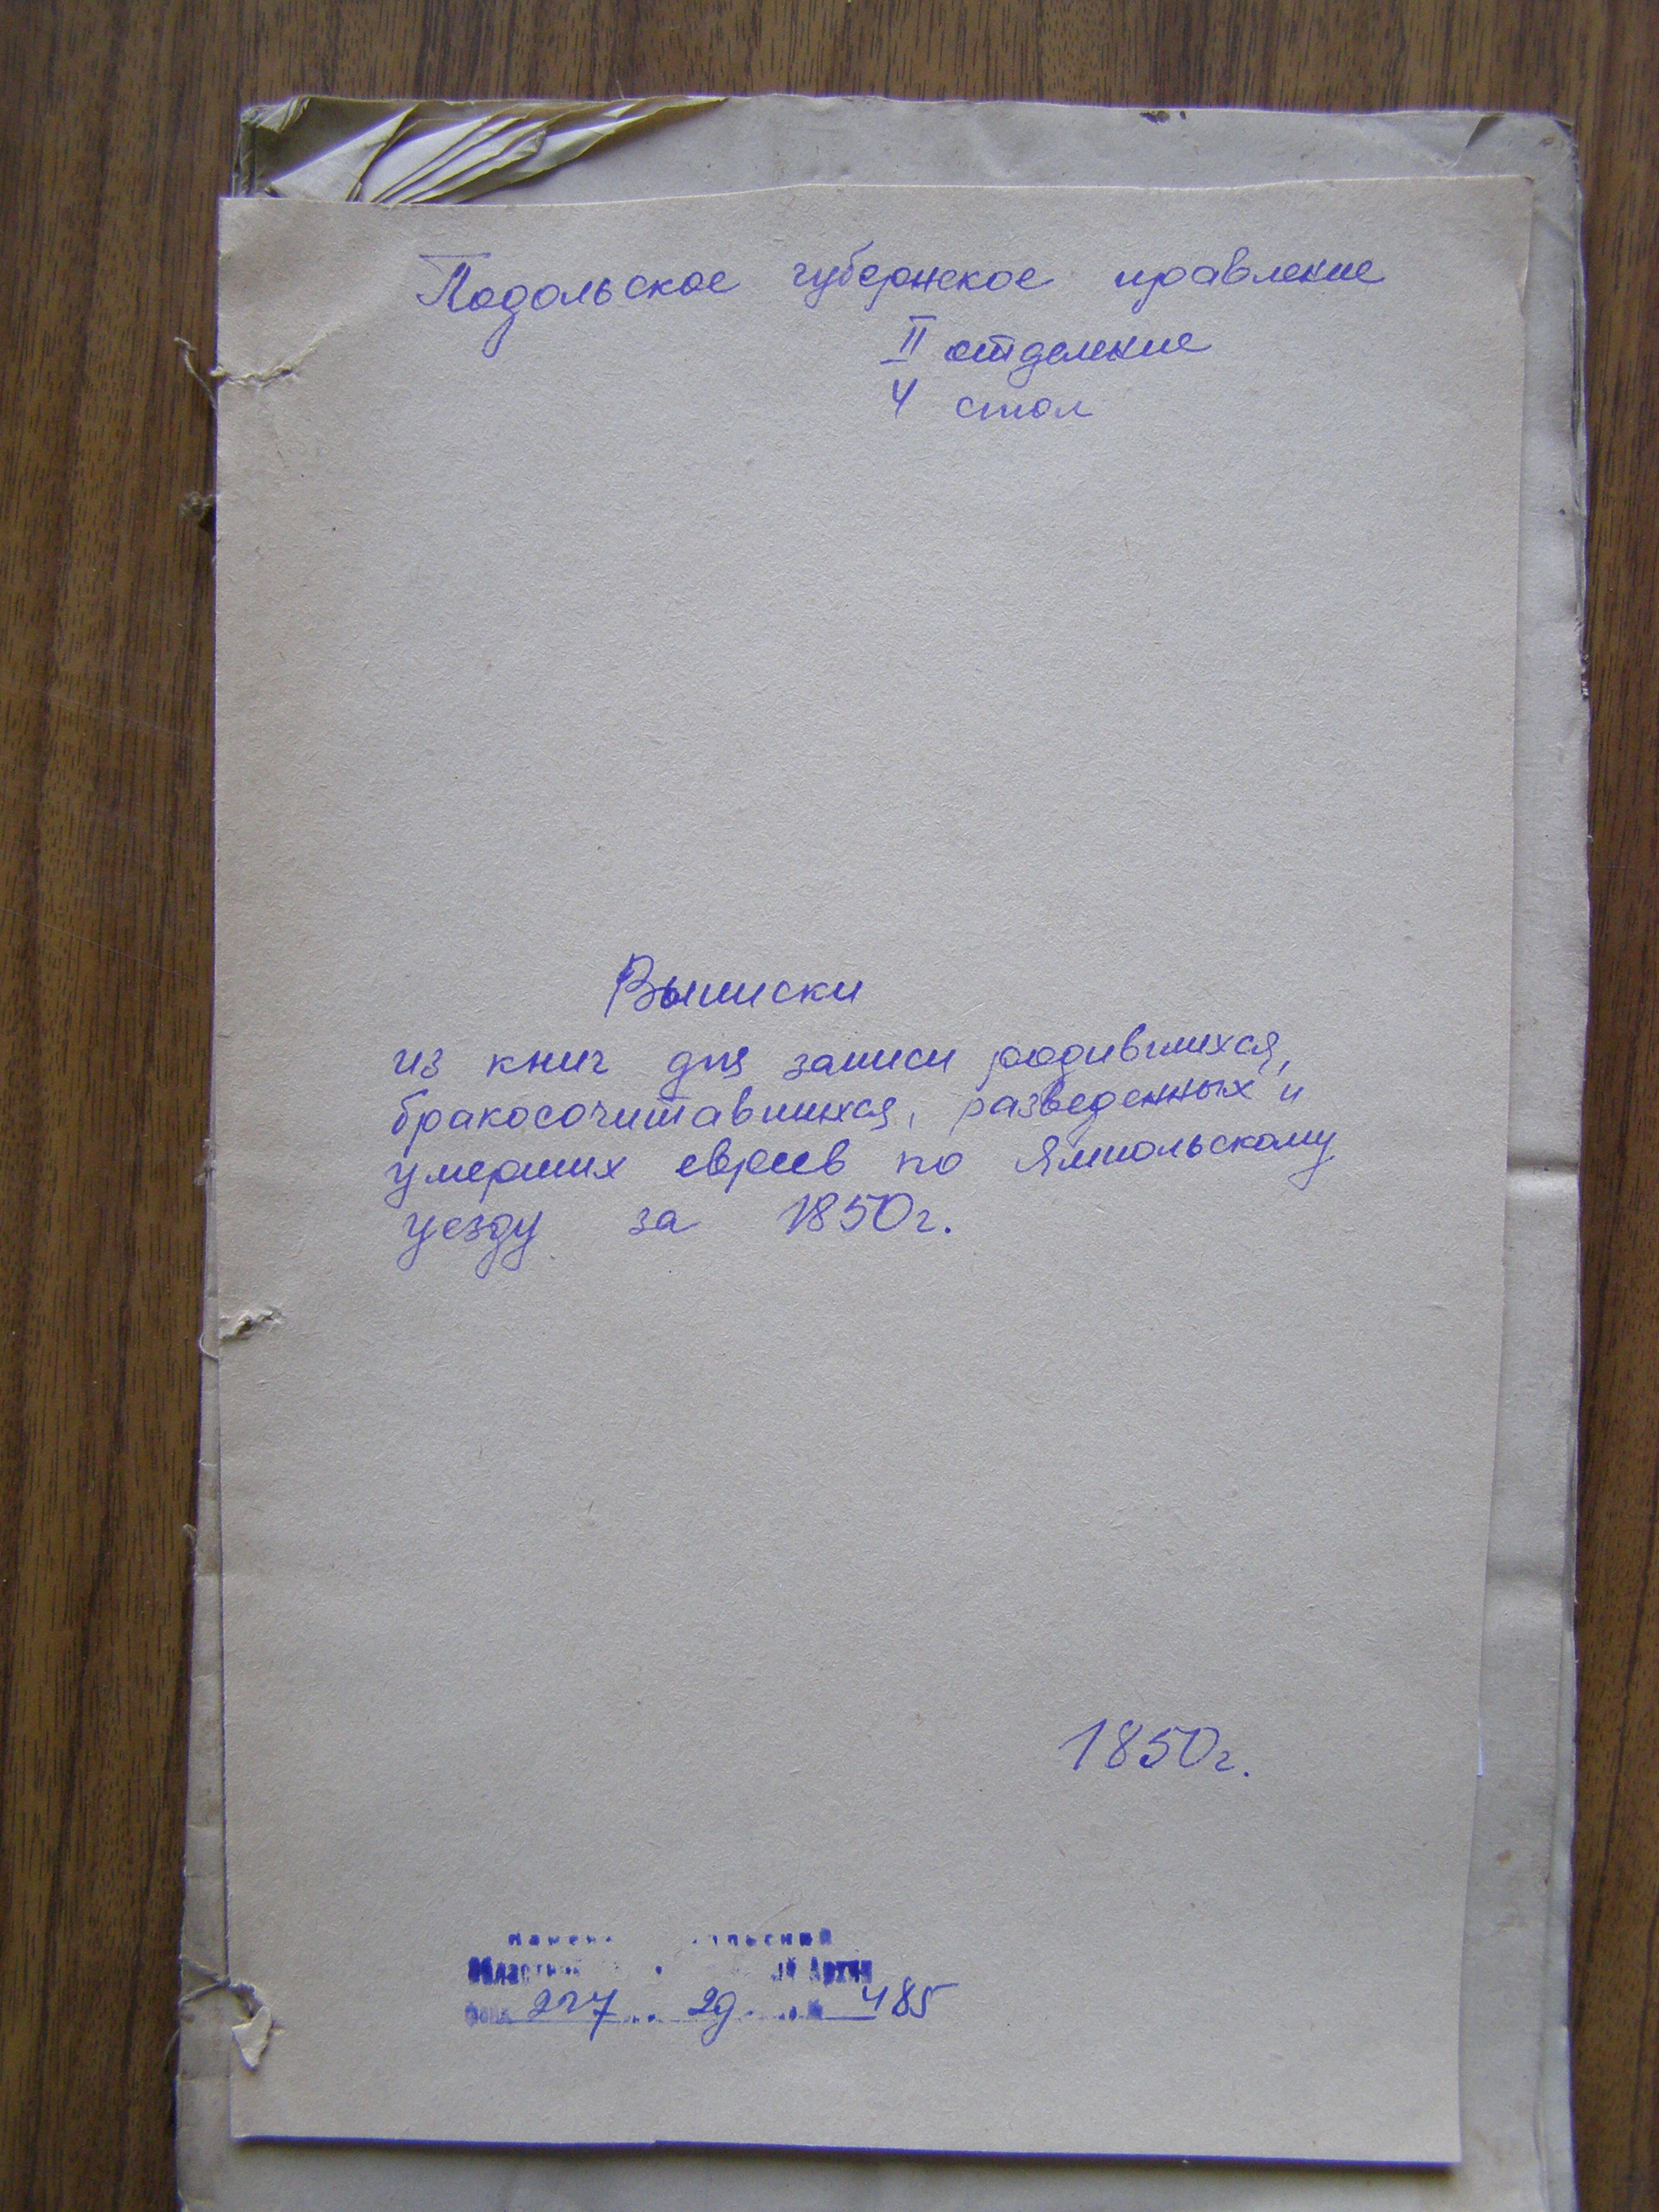 Подольское губернское правление
II отделение
4 стол
Выписки
из книг для записи родившихся,
бракосочитавшихся, разведенных и
умерших евреев по Ямпольскому
уезду за 1850г.
1850г.
Архив
227 29 485